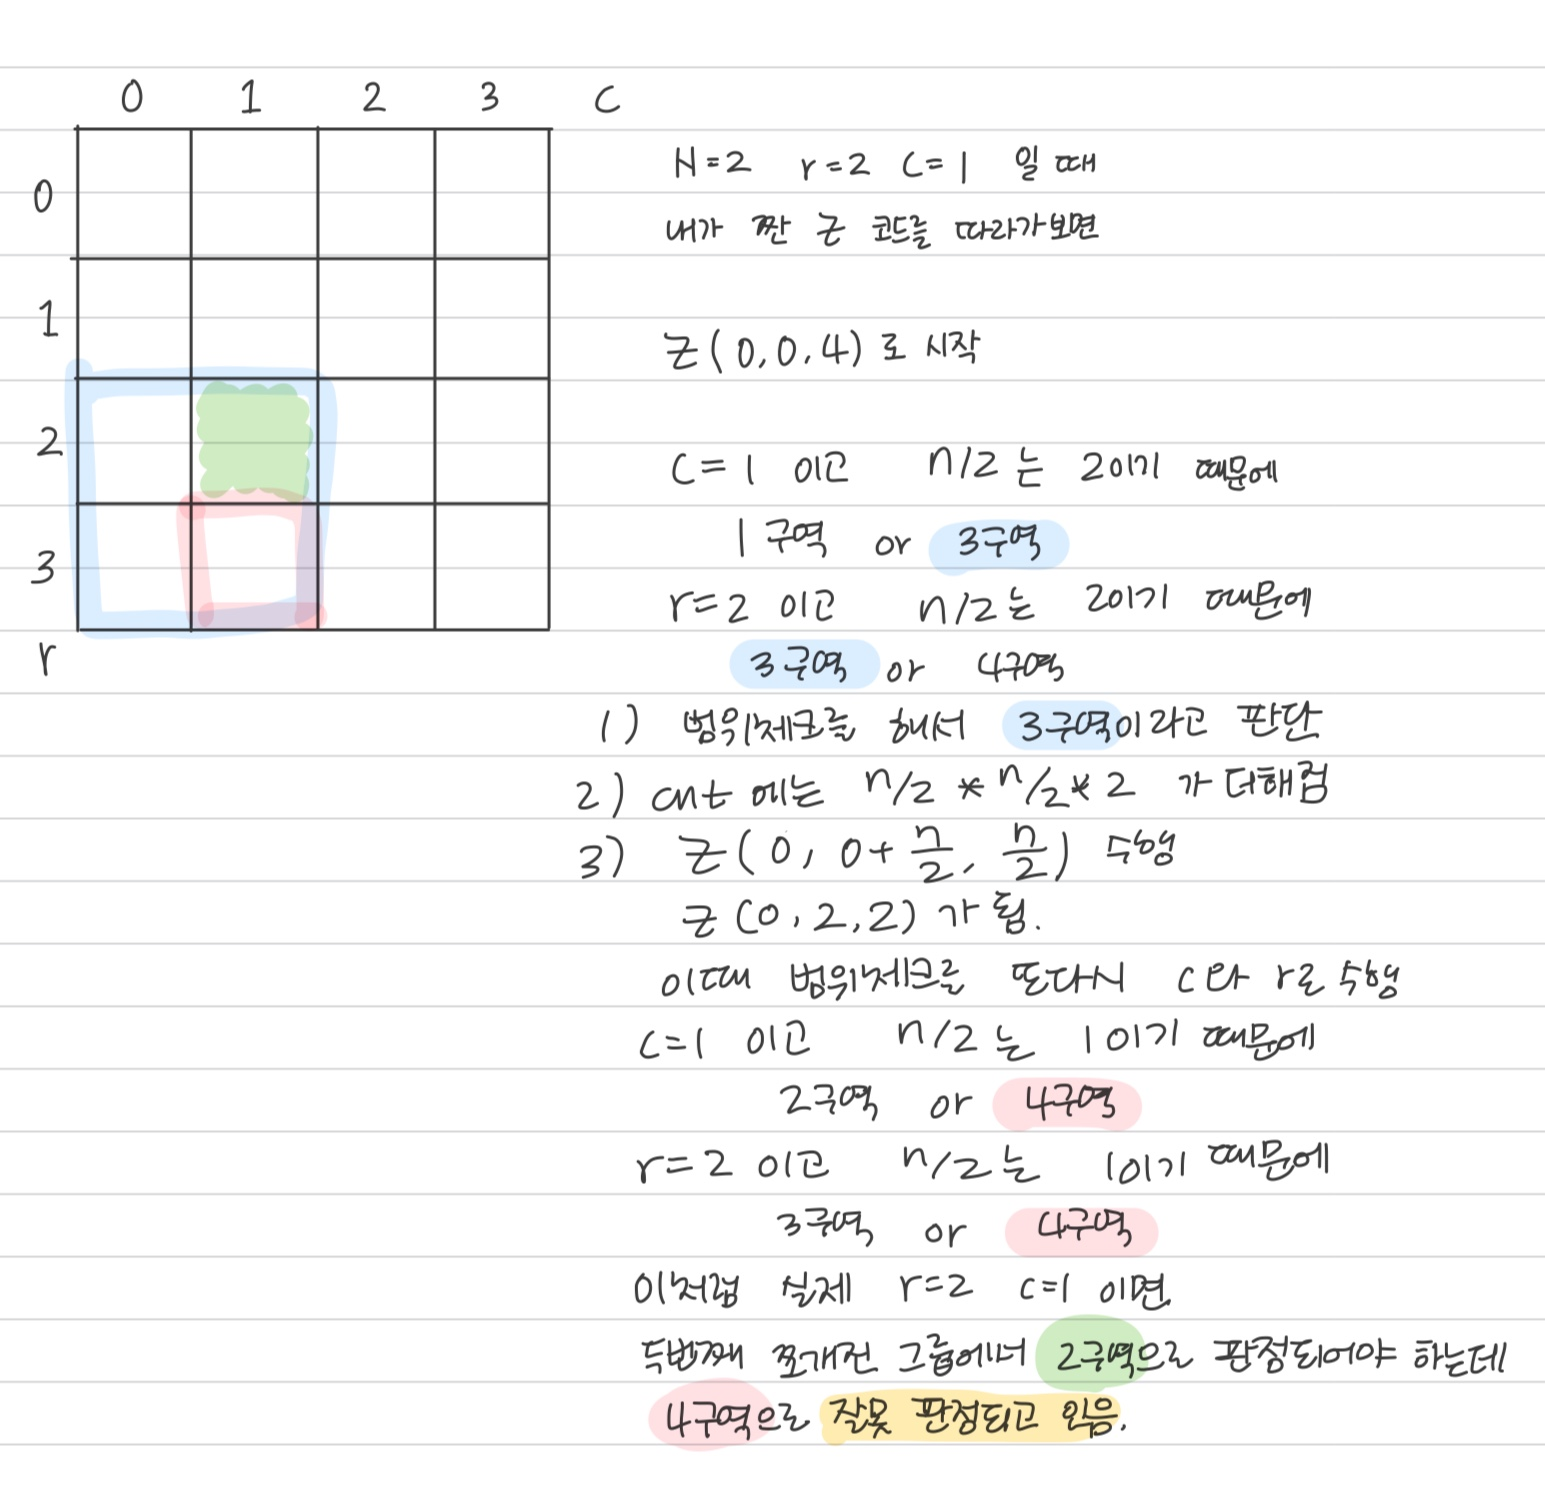 0 1 2 3 C
0
1
2
3
r
N=2 r=2 C=1 일 때
내가 짠 Z 코드를 따라가보면
Z(0,0,4)로 시작
C=1 이고 n/2는 2이기 때문에
1구역 or 3구역
r=2 이고 n/2는 2이기 때문에
3구역 or 4구역
1) 범위체크를 해서 3구역이라고 판단
2) cnt에는 n/2 * n/2 * 2 가 더해짐
3) Z(0, 0+n/2, n/2) 수행
Z(0,2,2)가 됨.
이때 범위체크를 또다시 c와 r로 수행
C=1 이고 n/2는 1이기 때문에
2구역 or 4구역
r=2 이고 n/2는 1이기 때문에
3구역 or 4구역
이처럼 실제 r=2 c=1 이면
두번째 쪼개진 그룹에서 2구역으로 판정되어야 하는데
4구역으로 잘못 판정되고 있음.